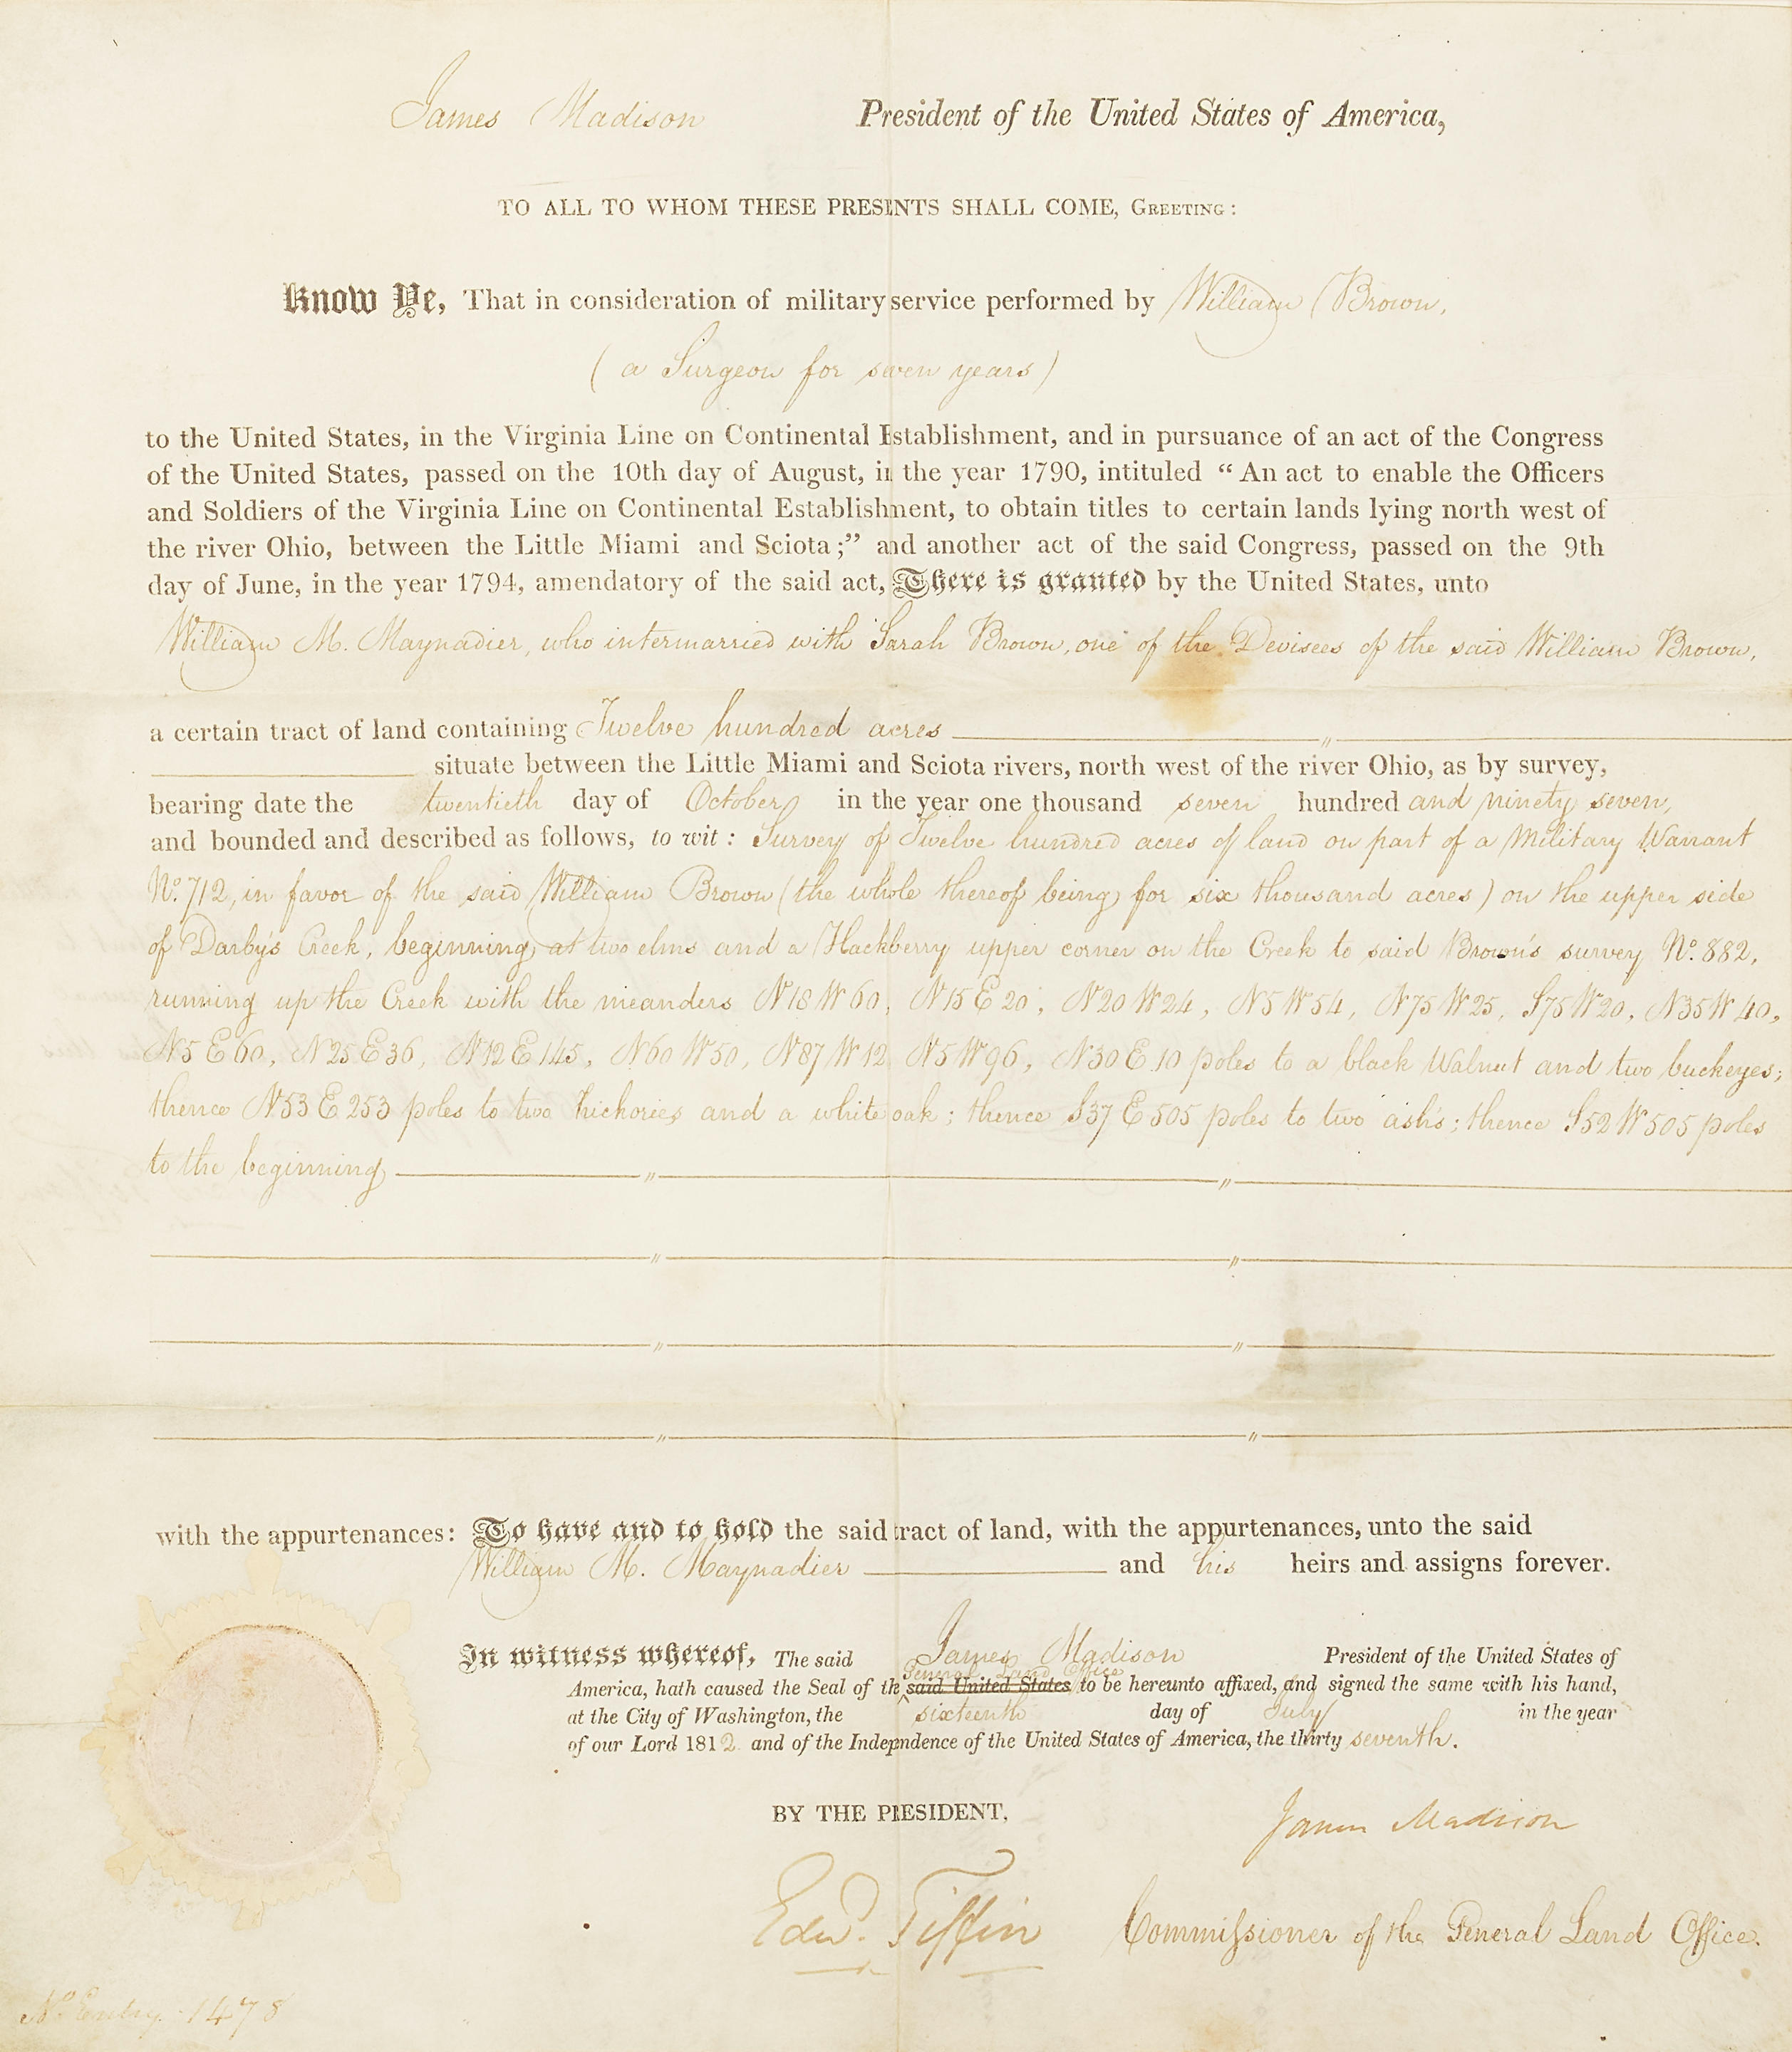 James Madison President of the United States of America,
TO ALL TO WHOM THESE PRESENTS SHALL COME, GREETING:
Know Ye, That in consideration of military service performed by William Brown,
(a Surgeon for seven years)
to the United States, in the Virginia Line on Continental Establishment, and in pursuance of an act of the Congress
of the United States, passed on the 10th day of August, in the year 1790, intituled “An act to enable the Officers
and Soldiers of the Virginia Line on Continental Establishment, to obtain titles to certain lands lying north west of
the river Ohio, between the Little Miami and Sciota;” and another act of the said Congress, passed on the 9th
day of June, in the year 1794, amendatory of the said act, There is granted by the United States, unto
William M. Maynadier, who intermarried with Sarah Brown, one of the Devisees of the said William Brown,
a certain tract of land containing Twelve hundred acres
situate between the Little Miami and Sciota rivers, north west of the river Ohio, as by survey,
bearing date the twentieth day of October in the year one thousand seven hundred and ninety seven,
and bounded and described as follows, to wit: Survey of Twelve hundred acres of land on part of a Military Warrant
No. 712, in favor of the said William Brown (the whole thereof being for six thousand acres) on the upper side
of Darby's Creek, beginning at two elms and a Hackberry upper corner on the Creek to said Brown's survey No. 882,
running up the Creek with the meanders N18W60, N15E20, N20W24, N5W54, N75W25, S75W20, N35W40,
N5E60, N25E36, N12E145, N60W50, N87W12, N5W96, N30E10 poles to a black Walnut and two buckeyes;
thence N53E253 poles to two hickories and a white oak; thence S37E505 poles to two ash's; thence S52W505 poles
to the beginning
with the appurtenances: To have and to hold the said tract of land, with the appurtenances, unto the said
William M. Maynadier and his heirs and assigns forever.
In witness whereof, The said James Madison President of the United States of
General Land Office
America, hath caused the Seal of the said United States to be hereunto affixed, and signed the same with his hand,
at the City of Washington, the sixteenth day of July in the year
of our Lord 1812 and of the Independence of the United States of America, the thirty seventh.
BY THE PRESIDENT,
James Madison
Edwd. Tiffin Commissioner of the General Land Office.
No. Entry. 1478